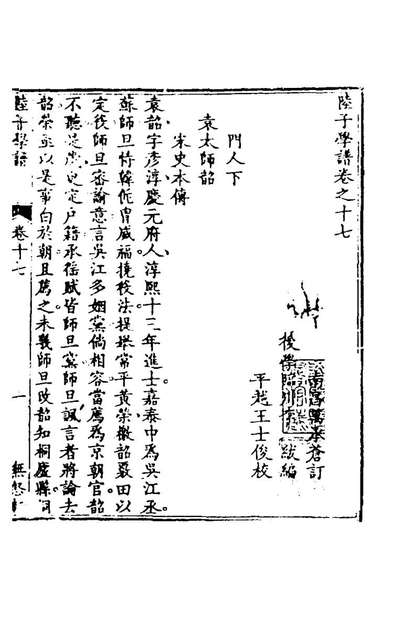 陸子學譜卷之十七
南昌萬承蒼訂
後學臨川李 紱編
平越王士俊校
門人下
袁太師韶
宋史本傳
袁韶字彥淳慶元府人淳熙十三年進士嘉泰中為吳江丞
蘇師旦恃韓侂冑威福撓役法提舉常平黄榮檄韶覈田以
定役師旦密諭意言吳江多姻黨倘相容當薦為京朝官韶
不聽是歲更定戶籍承徭賦皆師旦黨師旦諷言者將論去
韶榮亟以是事白於朝且薦之未幾師旦敗韶知桐廬縣同
陸子學譜
卷十七
一
無怒軒